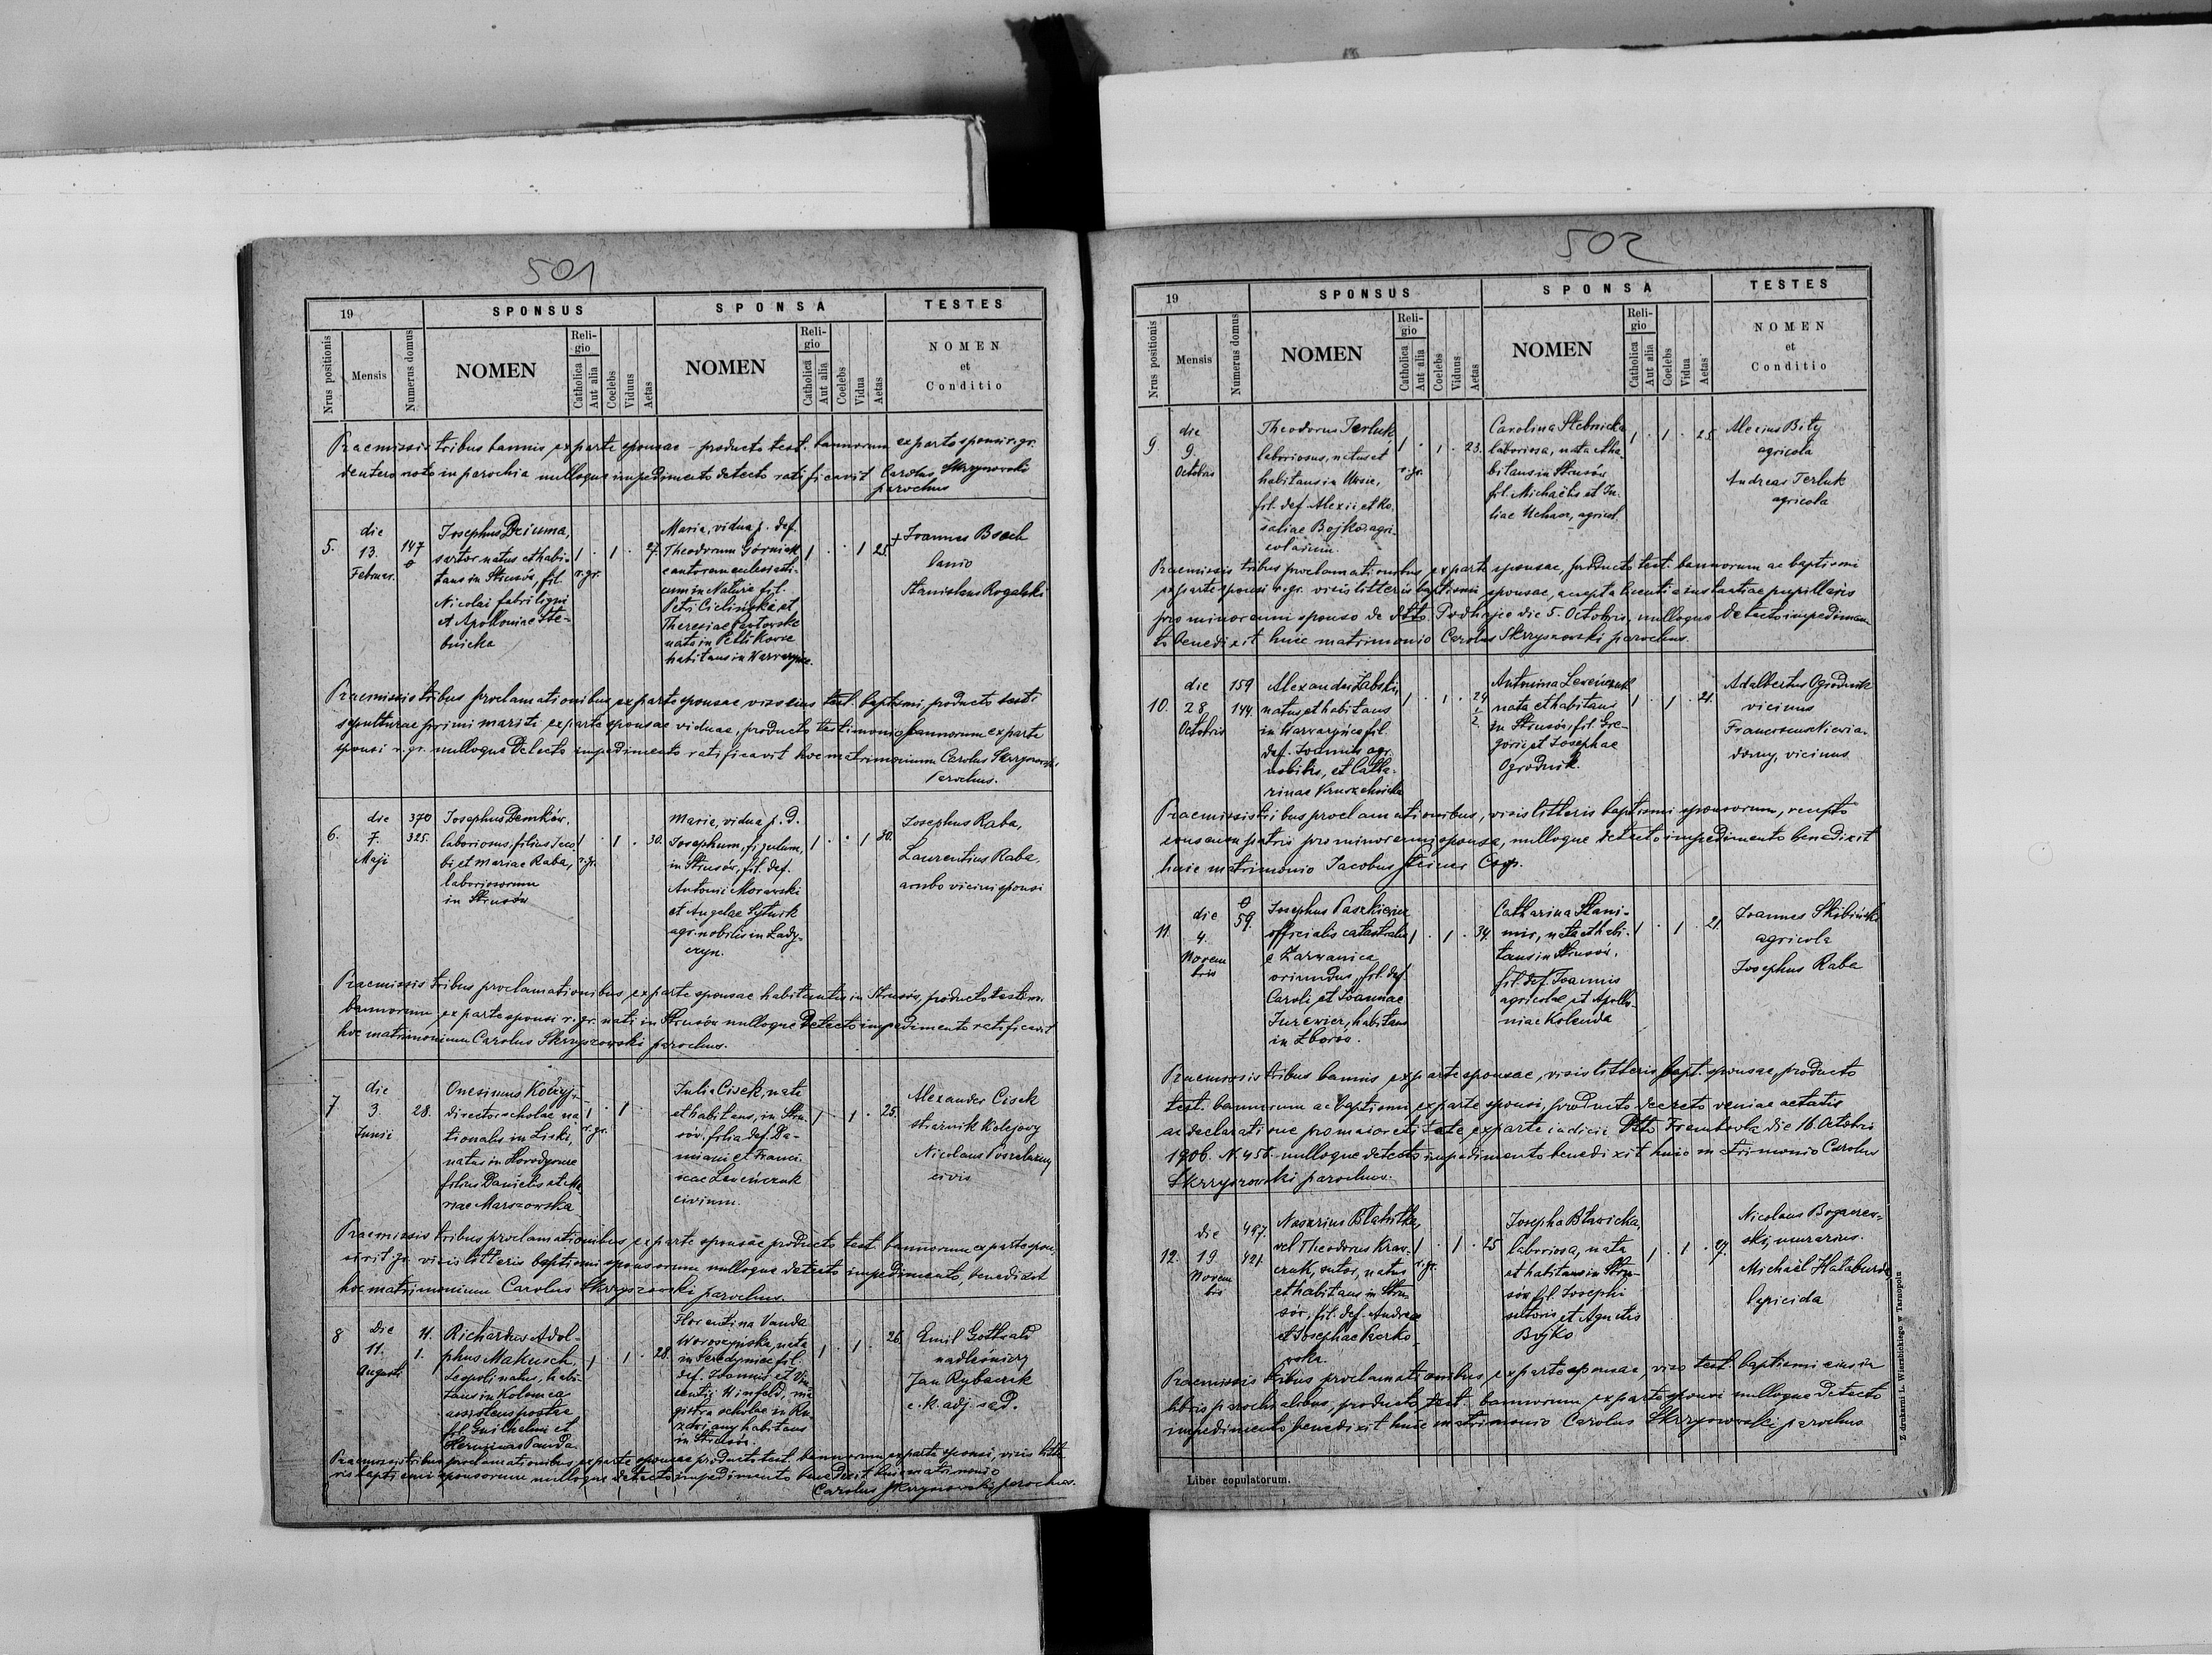 501
19
SPONSUS
SPONSA
TESTES
Nrus positionis
Mensis
Numerus domus
NOMEN
Religio
Catholica
Aut alia
Coelebs
Viduus
Aetas
NOMEN
Religio
Catholica
Aut alia
Coelebs
Vidua
Aetas
NOMEN
et
Conditio
Praemissis tribus bannis ex parte sponsae producto test. bannorum ex parte sponsi r. gr.
in parochia nulloque impedimento detecto ratificavit Carolus Skrzyszowski
parochus
5.
die
13.
Februar.
147
Josephus
sartor natus et habi-
tans in Strusów, fil.
Nicolai fabri ligni
et Apolloniae Ste-
bnicka
1 r. gr. 1 27.
Maria, vidua p. def.
Theodorum Górniak
cantorem ecclesiasti-
cum in fil.
Petri Cieliński et
Theresiae
nata in
habitans in Warwaryńce.
1 1 25.
+ Joannes Bosch
lanio
Stanislaus Rogalski
Praemissis tribus proclamationibus ex parte sponsae viso eius test. baptismi, producto testi
sepulturae primi mariti, ex parte sponsae viduae, producto testimonio bannorum ex parte
sponsi r. gr. nulloque detecto impedimento ratificavit hoc matrimonium Carolus Skrzyszowski
Parochus.
6.
die
7.
Maji
370
325.
Josephus Demków,
laboriosus, filius Jaco
bi, et Mariae Raba,
laboriosorum
in Strusów
1 r. gr. 1 30.
Maria, vidua p. d.
Josephum, figulum,
in Strusów, fil. def.
Antonii Morawski
et Angelae Sytnik
agr. nobilis in Łady-
czyn.
1 1 30.
Josephus Raba,
Laurentius Raba,
ambo vicini sponsi
Praemissis tribus proclamationibus ex parte sponsae habitantis in Strusów, producto testim.
bannorum ex parte sponsi r. gr. nati in Strusów nulloque detecto impedimento ratificavit
hoc matrimonium Carolus Skrzyszowski parochus.
7
die
3.
Junii
28.
Onesimus
director scholae na
tionalis in Liski,
natus in
filius Danielis et Ma
riae Marszowska
1 r. gr. 1
Julia Cisek, nata
et habitans, in Stru-
sów, filia def. Da-
miani et Franci-
scae Leweńczuk
civium.
1 1 25.
Alexander Cisek
strażnik kolejowy
Nicolaus
civis
Praemissis tribus proclamationibus ex parte sponsae producto test. bannorum ex parte spon-
si rit. gr. visis litteris baptismi sponsorum nulloque detecto impedimento, benedixit
hoc matrimonium Carolus Skrzyszowski parochus.
8
die
11.
Augusti
11.
1.
Richardus Adol-
phus Makusch,
Leopoli natus, habi-
tans in Kolomea
assistens postae
fil. Guilhelmi et
Herminae Panda.
1 1 28.
Florentina Vanda
Woroszyńska, nata
in Seredyńce fil.
def. Joannis et Vin
centiae Winfeld, ma
gistra scholae in
habitans
in Strusów.
1 1 26
Emil Gottwald
nadleśniczy
Jan Rybaczek
c. k. adj. sąd.
Praemissis tribus proclamationibus, ex parte sponsae producto test. bannorum ex parte sponsi, visis litte
ris baptismi sponsorum nulloque detecto impedimento benedixit huic matrimonio
Carolus Skrzyszowski parochus.
502
19
SPONSUS
SPONSA
TESTES
Nrus positionis
Mensis
Numerus domus
NOMEN
Religio
Catholica
Aut alia
Coelebs
Viduus
Aetas
NOMEN
Religio
Catholica
Aut alia
Coelebs
Vidua
Aetas
NOMEN
et
Conditio
9
die
9.
Octobris
Theodorus Terluk,
laboriosus, natus et
habitans in
fil. def. Alexii, et Ro-
saliae Bojko agri-
colarum.
1 r. gr. 1 23.
Carolina Stebnicka
laboriosa, nata et ha-
bitans in Strusów
fil. Michaëlis et Ju-
liae Uchacz, agricol.
1 1 25.
Alexius Bily
agricola
Andreas Terluk
agricola
Praemissis tribus proclamationibus ex parte sponsae, producto test. bannorum ac baptismi
ex parte sponsi r. gr. visis litteris baptismi sponsae, accepta licentia instantiae pupillaris
pro minorenni sponso de dtto Podhajce die 5. Octobris, nulloque detecto impedimen
to benedixit huic matrimonio Carolus Skrzyszowski parochus.
10.
die
28
Octobris
159
144.
Alexander Żabski,
natus et habitans
in Warwaryńce fil.
def. Joannis agr.
nobilis, et Catha-
rinae Kruszelnicka
1 1 24
Antonina Leweńczuk
nata et habitans
in Strusów, fil. Gre-
gorii et Josephae
Ogrodnik.
1 1 21.
Adalbertus Ogrodnik
vicinus
Franciscus
vicinus
Praemissis tribus proclamationibus, visis litteris baptismi sponsorum, recepto
consensu patris pro minorenni sponsa, nulloque detecto impedimento benedixit
huic matrimonio Jacobus Steiner Coop.
11.
die
4.
Novem
bris
59.
Josephus Paszkiewicz
officialis catastralis
e Zarwanica
oriundus, fil. def.
Caroli, et Joannae
Jurewicz, habitans
in Zborów.
1 1 34.
Catharina Stani-
mir, nata et habi-
tans in Strusów,
fil. def. Joannis
agricolae et Apollo-
niae Kolenda
1 1 21.
Joannes Skibiński
agricola
Josephus Raba
Praemissis tribus bannis ex parte sponsae, visis litteris bapt. sponsae, producto
test. bannorum ac baptismi ex parte sponsi, producto decreto veniae aetatis
ac declaratione pro maiorennitate ex parte iudicii Dtto Trembowla die 16. Octobris
1906. N. 456. nulloque detecto impedimento benedixit huic matrimonio Carolus
Skrzyszowski parochus.
12.
die
19
Novem
bris
497.
421.
Nasarius Blahitka,
vel Theodorus Kraw-
czuk, sutor, natus
et habitans in Stru-
sów, fil. def. Andreae
et Josephae
1 r. gr. 1 25
Josepha
laboriosa, nata
et habitans in Stru-
sów fil. Josephi
sutoris et Agnetis
Bojko
1 1 27.
Nicolaus
ski, murarius.
Michaël Hałaburda
lapicida
Praemissis tribus proclamationibus, ex parte sponsae, viso test. baptismi eius in
libris parochialibus, producto test. bannorum ex parte sponsi nulloque detecto
impedimento, benedixit huic matrimonio Carolus Skrzyszowski parochus
Liber copulatorum.
Z drukarni L. Wierzbickiego w Tarnopolu